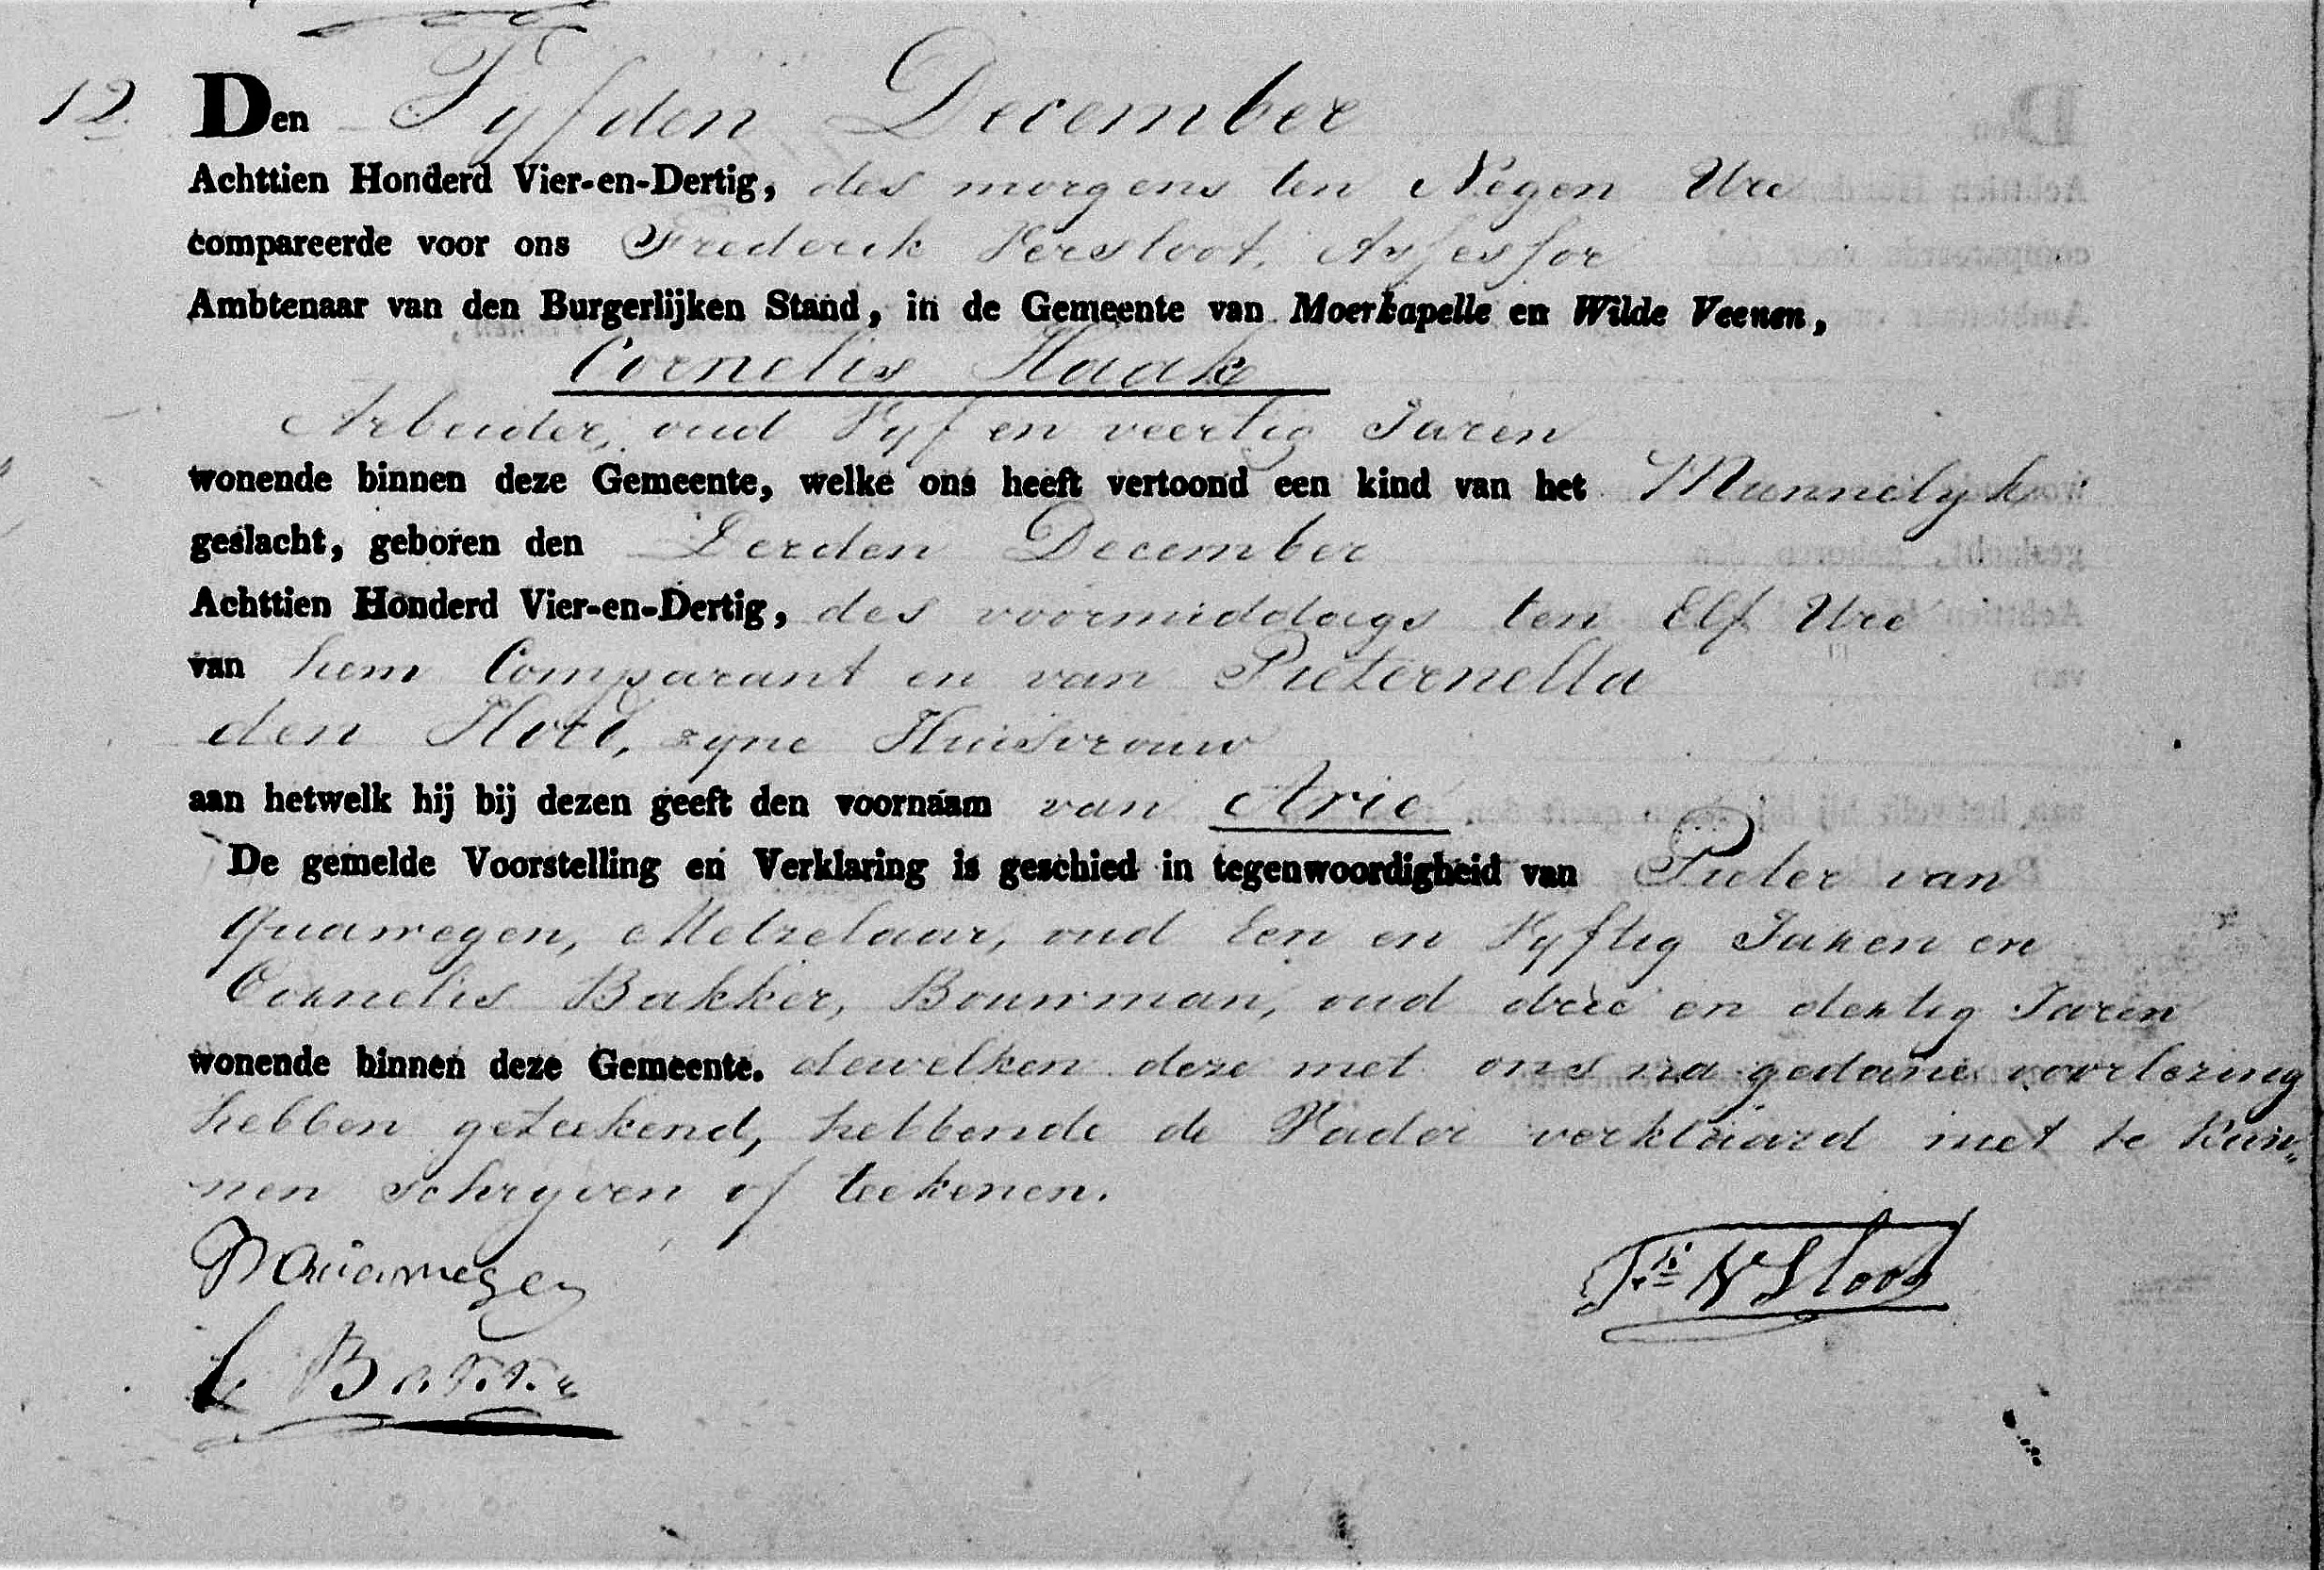 12. Den Vyfden December
Achttien Honderd Vier-en-Dertig, des morgens ten Negen Ure
compareerde voor ons Frederik Versloot, Assessor
Ambtenaar van den Burgerlijken Stand, in de Gemeente van Moerkapelle en Wilde Veenen,
Cornelis Haak
Arbeider, oud Vyf en veertig Jaren
wonende binnen deze Gemeente, welke ons heeft vertoond een kind van het Mannelyk
geslacht, geboren den Derden December
Achttien Honderd Vier-en-Dertig, des voormiddags ten Elf Ure
van hem Comparant en van Pieternella
den Hoed, zyne Huisvrouw
aan hetwelk hij bij dezen geeft den voornaam van Arie
De gemelde Voorstelling en Verklaring is geschied in tegenwoordigheid van Pieter van
Quawegen, Metzelaar, oud Een en Vyftig Jaren en
Cornelis Bakker, Bouwman, oud drie en dertig Jaren
wonende binnen deze Gemeente. dewelken deze met ons na gedane voorlezing
hebben geteekend, hebbende de Vader verklaard niet te kun„
nen schryven of teekenen.
P Quawegen
Fk VSloot
C Bakker